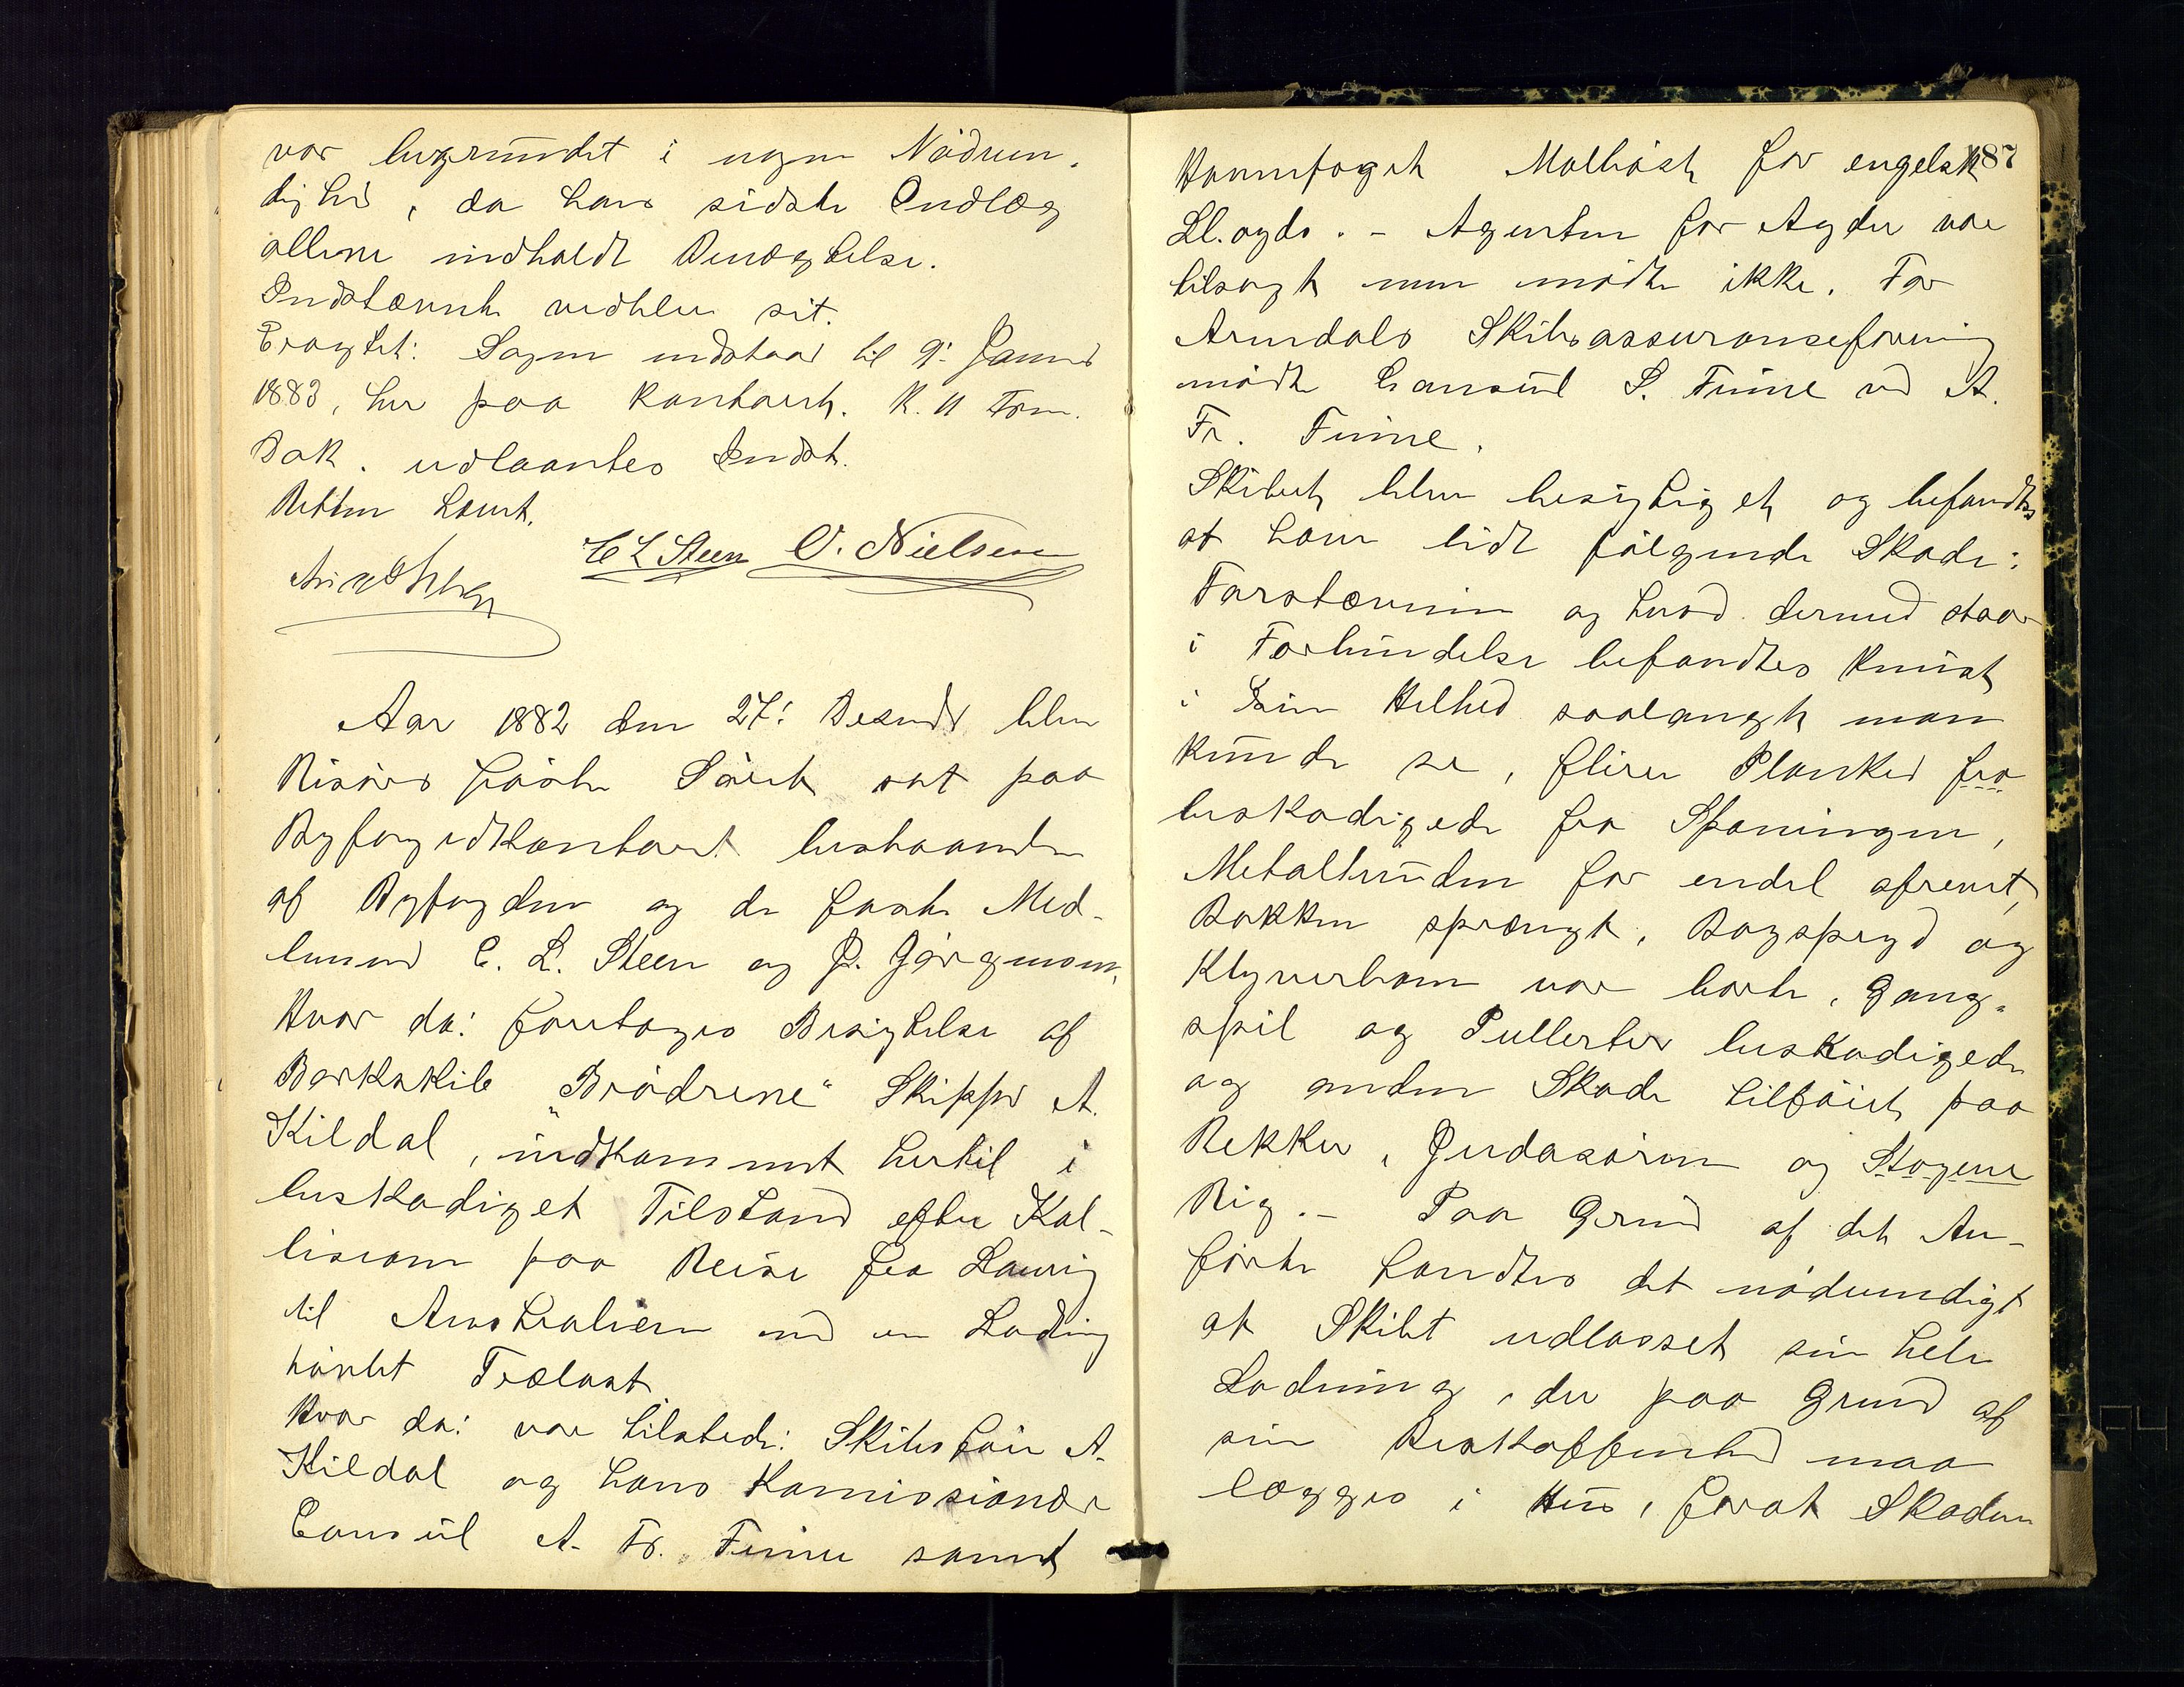 var begrundet i nogen Nödven-
dighed, da hans sidste Indlæg
allene indholdt Benægtelse.
Indstævnte vedblev sit.
Eragtet: Sagen udstaar til 9: Januar
1883, her paa Kontoret. K. U
Dok. udlaantes Indst.
Retten hævet.
C L Steen O. Nielsen
Aar 1882 den 27: Desembr blev
Risörs faste Söret sat paa
Byfogedkontoret bestaaende
af Byfogden og de faste Med-
lemmer C. L. Steen og P. Jörgensen,
Hvor da: foretoges Besigtelse af
Barkskib "Brödrene" Skipper A.
Kildal, indkommet hertil i
beskadiget Tilstand efter Kol-
lision paa Reise fra Laurvig
til Australien med en Ladning
hövlet Trælast
Hvor da: var tilstede: Skibsförer A.
Kildal og hans Komissionær
Consul A. Fr. Finne samt
187
Havnefoget Malhöst for engelsk
Lloyds. - Agenten for Agder var
tilsagt men mödte ikke. For
Arendals Skibsassuranseforening
mödte Consul S. Finne ved A.
Fr. Finne.
Skibet blev besigtiget og befandtes
at have lidt fölgende Skade:
Forstævnen og hvad dermed staar
i Forbindelse befandtes knust
i sin Helhed saalangt man
kunde se, flere Planker fra
beskadigede fra Spaningen,
Metalhuden for endel afrevet,
Bakken sprængt, Bogspryd og
Klyverbom var borte, Gang-
spil og Pullerter beskadigede
og anden Skade tilföiet paa
Rekker, Judasören og Stagene
Rig. - Paa Grund af det An-
förte fandtes det nödvendigt
at Skibet udlosset sin hele
Ladning, der paa Grund af
sin Beskaffenhed maa
lægges i Hus, forat Skaden